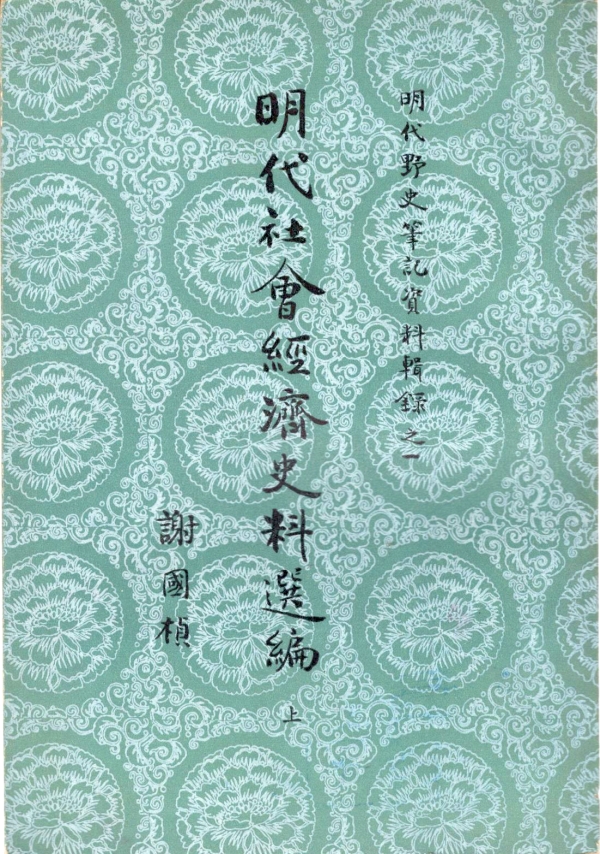 明代野史筆記資料輯錄之一
明代社會經濟史料選編
上
謝國楨